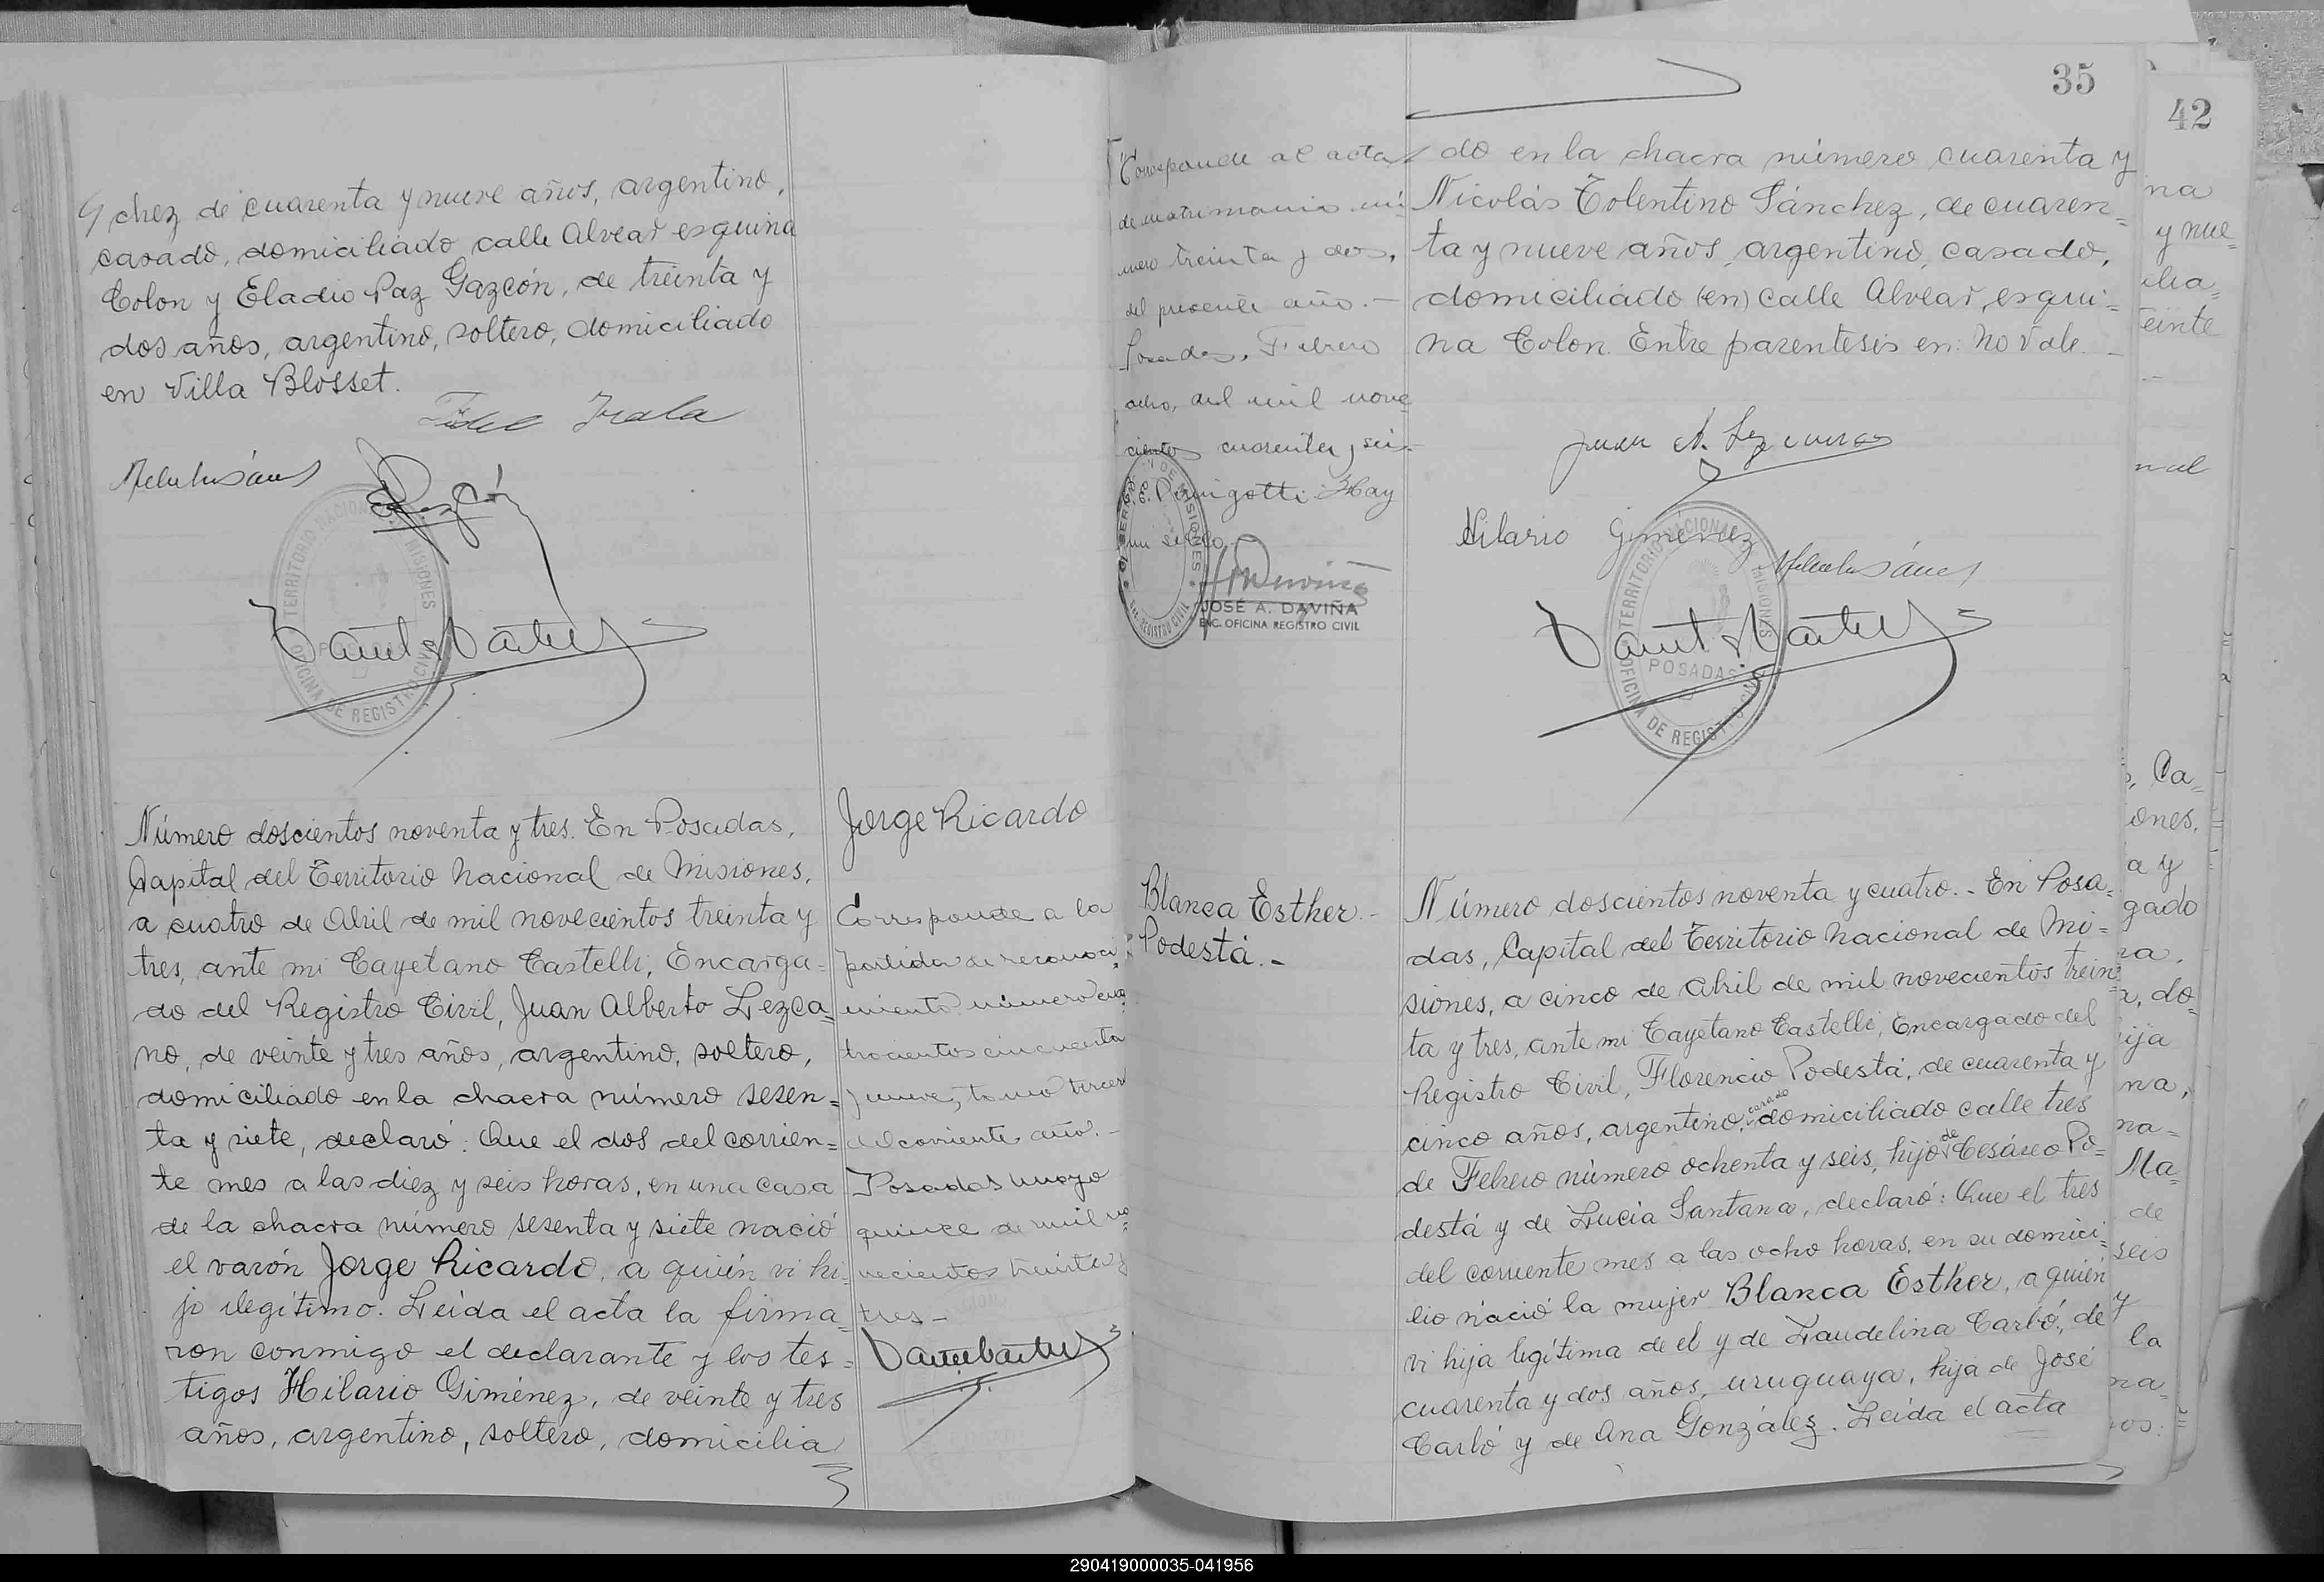 chez de cuarenta y nueve años, argentino,
casado, domiciliado calle Alvear esquina
Colon y Eladio Paz Gazcón, de treinta y
dos años, argentino, soltero, domiciliado
en Villa Blosset.
Fidel Irala
TERRITORIO NACIONAL MISIONES
OFICINA DE REGISTRO CIVIL
Número doscientos noventa y tres. En Posadas,
Capital del Territorio Nacional de Misiones,
a cuatro de Abril de mil novecientos treinta y
tres, ante mi Cayetano Castelli, Encarga=
do del Registro Civil, Juan Alberto Lezca=
no, de veinte y tres años, argentino, soltero,
domiciliado en la chacra número sesen=
ta y siete, declaró: Que el dos del corrien=
te mes a las diez y seis horas, en una casa
de la chacra número sesenta y siete nació
el varón Jorge Ricardo, a quién vi hi=
jo ilegítimo. Leida el acta la firma=
ron conmigo el declarante y los tes=
tigos Hilario Giménez, de veinte y tres
años, argentino, soltero, domicilia
Jorge Ricardo
Corresponde a la
partida de reconoci=
miento número cua=
trocientos cincuenta
y nueve, tomo tercero
del corriente año.-
Posadas mayo
quince de mil no=
vecientos treinta y
tres-
Corresponde al acta
de matrimonio nú=
mero treinta y dos,
del presente año.-
Posadas, Febrero
ocho, del mil nove
cientos cuarenta y seis.
Hay
un sello
JOSÉ A. DAVIÑA
ENC. OFICINA REGISTRO CIVIL
Blanca Esther.-
Podestá.-
35
do en la chacra número cuarenta y
Nicolás Tolentino Sánchez, de cuaren=
ta y nueve años, argentino, casado,
domiciliado (en) calle Alvear, esqui=
na Colon. Entre parentesis en: no vale.-
Juan A. Lezcano
Hilario Giménez
TERRITORIO NACIONAL MISIONES
POSADAS
OFICINA DE REGISTRO CIVIL
Número doscientos noventa y cuatro.- En Posa=
das, Capital del Territorio Nacional de Mi=
siones, a cinco de Abril de mil novecientos trein=
ta y tres, ante mi Cayetano Castelli, Encargado del
Registro Civil, Florencio Podestá, de cuarenta y
cinco años, argentino, casado domiciliado calle tres
de Febrero número ochenta y seis, hijo de Cesáreo Po=
destá y de Lucia Santana, declaró: Que el tres
del corriente mes a las ocho horas, en su domici=
lio nació la mujer Blanca Esther, a quién
vi hija legítima de el y de Laudelina Carbó, de
cuarenta y dos años, uruguaya, hija de José
Carbó y de Ana González. Leida el acta
42
na
y nue=
ilia=
einte
Ca=
ones,
a y
gado
ra,
a, do=
ija
na,
na=
Ma=
de
seis
y
la
na=
vos:
290419000035-041956